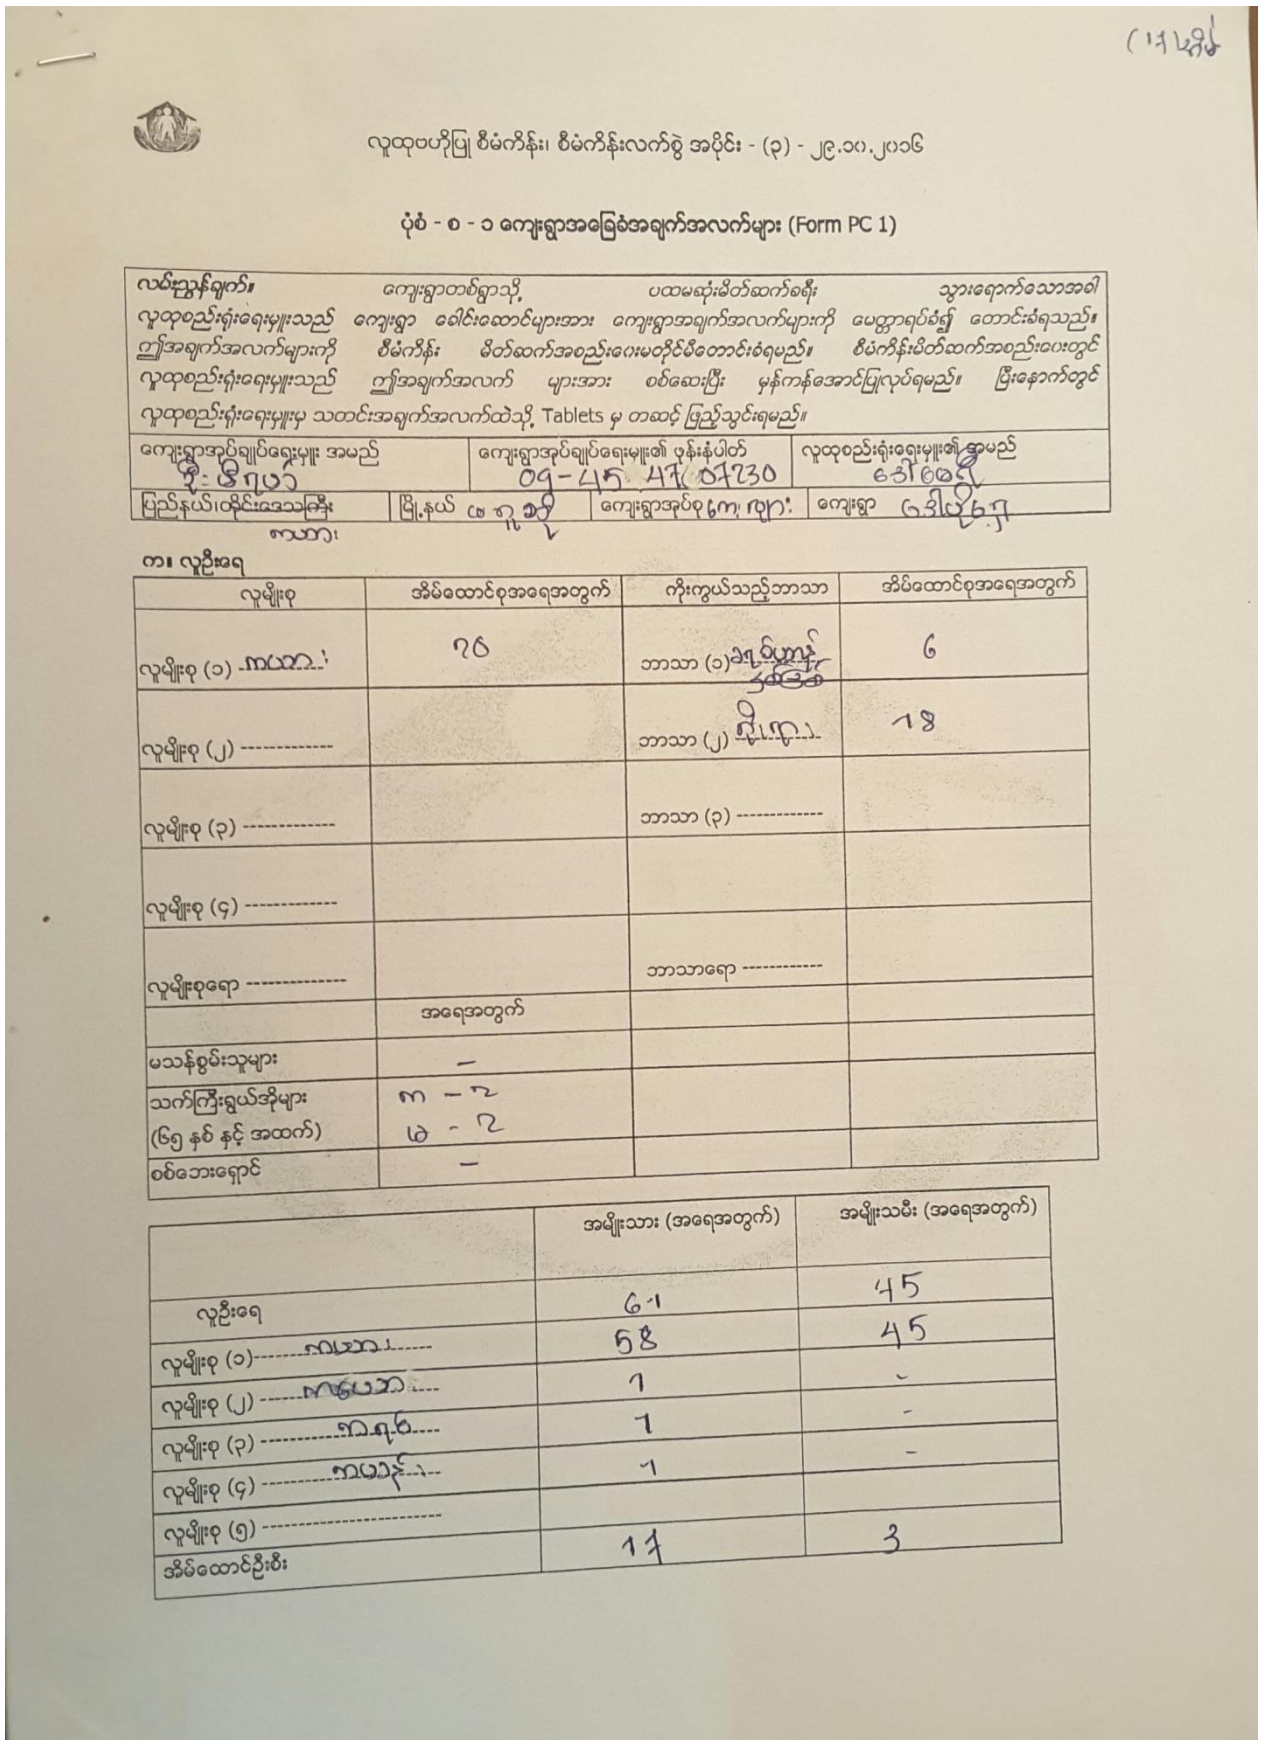 လူထုဗဟိုပြု စီမံကိန်း၊ စီမံကိန်းလက်စွဲ အပိုင်း - (၃) - ၂၉.၁၀.၂၀၁၆
ပုံစံ - စ - ၁ ကျေးရွာအခြေခံအချက်အလက်များ (Form PC 1)
လမ်းညွှန်ချက်။ ကျေးရွာတစ်ရွာသို့ ပထမဆုံးမိတ်ဆက်ခရီး သွားရောက်သောအခါ
လူထုစည်းရုံးရေးမှူးသည် ကျေးရွာ ခေါင်းဆောင်များအား ကျေးရွာအချက်အလက်များကို မေတ္တာရပ်ခံ၍ တောင်းခံရသည်။
ဤအချက်အလက်များကို စီမံကိန်း မိတ်ဆက်အစည်းဝေးမတိုင်မီတောင်းခံရမည်။ စီမံကိန်းမိတ်ဆက်အစည်းဝေးတွင်
လူထုစည်းရုံးရေးမှူးသည် ဤအချက်အလက် များအား စစ်ဆေးပြီး မှန်ကန်အောင်ပြုလုပ်ရမည်။ ပြီးနောက်တွင်
လူထုစည်းရုံးရေးမှူးမှ သတင်းအချက်အလက်ထဲသို့ Tablets မှ တဆင့် ဖြည့်သွင်းရမည်။
ကျေးရွာအုပ်ချုပ်ရေးမှူး အမည် ကျေးရွာအုပ်ချုပ်ရေးမှူး၏ ဖုန်းနံပါတ် လူထုစည်းရုံးရေးမှူး၏ အမည်
09-45 47 07230
ပြည်နယ်၊တိုင်းဒေသကြီး မြို့နယ် ကျေးရွာအုပ်စု ကျေးရွာ
ကယား
က။ လူဦးရေ
လူမျိုးစု အိမ်ထောင်စုအရေအတွက် ကိုးကွယ်သည့်ဘာသာ အိမ်ထောင်စုအရေအတွက်
လူမျိုးစု (၁) ကယား ၂၀ ဘာသာ (၁) ခရစ်ယာန် 6
လူမျိုးစု (၂) ------------- ဘာသာ (၂) 18
လူမျိုးစု (၃) ------------- ဘာသာ (၃) -------------
လူမျိုးစု (၄) -------------
လူမျိုးစုရော -------------- ဘာသာရော ------------
အရေအတွက်
မသန်စွမ်းသူများ -
သက်ကြီးရွယ်အိုများ က - ၃
(၆၅ နှစ် နှင့် အထက်) မ - ၃
စစ်ဘေးရှောင် -
အမျိုးသား (အရေအတွက်) အမျိုးသမီး (အရေအတွက်)
လူဦးရေ 61 45
လူမျိုးစု (၁) ကယား 58 45
လူမျိုးစု (၂) 1 -
လူမျိုးစု (၃) 1 -
လူမျိုးစု (၄) 1 -
လူမျိုးစု (၅) -------------------------
အိမ်ထောင်ဦးစီး 17 3